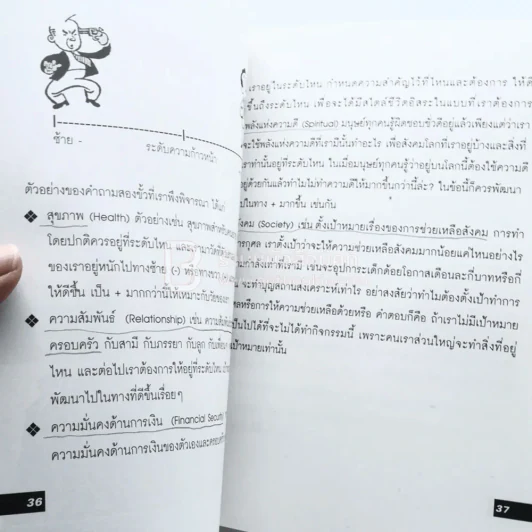 ซ้าย -
ระดับความก้าวหน้า
ตัวอย่างของคำถามสองขั้วที่เราพึงพิจารณา ได้แก่
❖ สุขภาพ (Health) ตัวอย่างเช่น สุขภาพสำหรับคน
โดยปกติควรอยู่ที่ระดับไหน และเรามาวัดกัน
ของเราอยู่หนักไปทางซ้าย (-) หรือทางขวา (+)
ให้ดีขึ้น เป็น + มากกว่านี้ให้เหมาะกับวัยของ
❖ ความสัมพันธ์ (Relationship) เช่น ความสัม
ครอบครัว กับสามี กับภรรยา กับลูก กับเพื่อน
ไหน และต่อไปเราต้องการให้อยู่ที่ระดับไหน
พัฒนาไปในทางที่ดีขึ้นเรื่อยๆ
❖ ความมั่นคงด้านการเงิน (Financial Security)
ความมั่นคงด้านการเงินของตัวเองและครอบครัว
36
เราอยู่ในระดับไหน กำหนดความสำคัญไว้ที่ไหนและต้องการ ให้ดี
ขึ้นถึงระดับไหน เพื่อจะได้มีสไตล์ชีวิตอิสระในแบบที่เราต้องการ
พลังแห่งความดี (Spiritual) มนุษย์ทุกคนรู้ผิดชอบชั่วดีอยู่แล้วเพียงแต่ว่าเรา
จะใช้พลังแห่งความดีที่เรามีนั้นทำอะไร เพื่อสังคมโลกที่เราอยู่บ้างและสิ่งที่
เราทำนั้นอยู่ที่ระดับไหน ในเมื่อมนุษย์ทุกคนรู้ว่าอยู่บนโลกนี้ต้องใช้ความดี
อยู่ด้วยกันแล้วทำไมไม่ทำความดีให้มากขึ้นกว่านี้ล่ะ? ในข้อนี้ก็ควรพัฒนา
ไปในทาง + มากขึ้น เช่นกัน
สังคม (Society) เช่น ตั้งเป้าหมายเรื่องของการช่วยเหลือสังคม การทำ
การกุศล เราตั้งเป้าว่าจะให้ความช่วยเหลือสังคมมากน้อยแค่ไหนอย่างไร
กำลังเราเท่าที่เรามี เช่นจะอุปการะเด็กด้อยโอกาสเดือนละกี่บาทหรือกี่
จะทำบุญสถานสงเคราะห์เท่าไร อย่างสงสัยว่าทำไมต้องตั้งเป้าทำการ
กุศลหรือการให้ความช่วยเหลือด้วยหรือ คำตอบก็คือ ถ้าเราไม่มีเป้าหมาย
เป็นไปได้ที่จะไม่ได้ทำกิจกรรมนี้ เพราะคนเราส่วนใหญ่จะทำสิ่งที่อยู่
เป้าหมายเท่านั้น
37